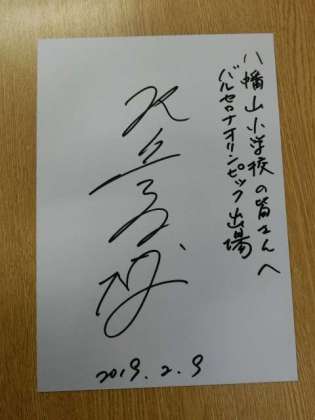 八幡山小学校の皆さんへ
バルセロナオリンピック出場
2019.2.9